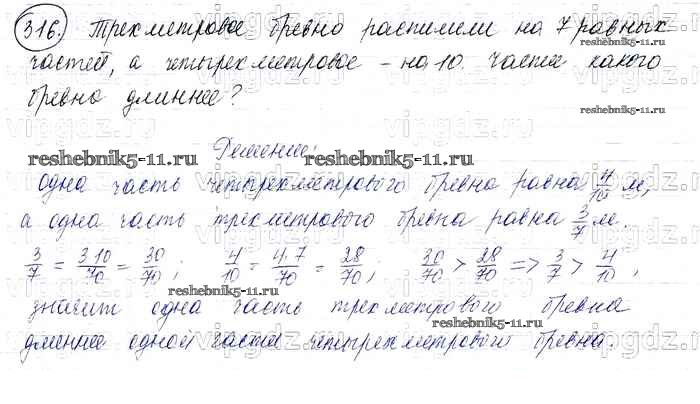 316. Трехметровое бревно распилили на 7 равных
частей, а четырехметровое - на 10. Части какого
бревна длиннее?
Решение:
Одна часть четырехметрового бревна равна 4/10 м,
а одна часть трехметрового бревна равна 3/7 м.
3/7 = 3·10/70 = 30/70; 4/10 = 4·7/70 = 28/70; 30/70 > 28/70 => 3/7 > 4/10,
значит одна часть трехметрового бревна
длиннее одной части четырехметрового бревна.
reshebnik5-11.ru
reshebnik5-11.ru
reshebnik5-11.ru
reshebnik5-11.ru
reshebnik5-11.ru
vipgdz.ru